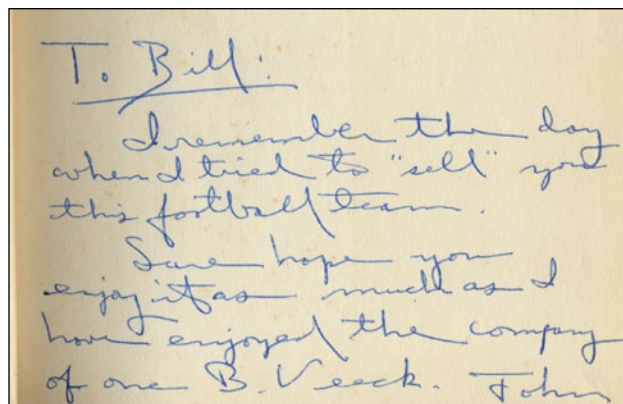 To Bill:
I remember the day
when I tried to "sell" you
this football team.
Sure hope you
enjoy it as much as I
have enjoyed the company
of one B. Veeck. John